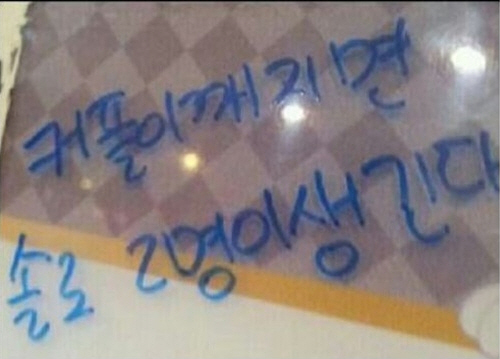 커플이깨지면
솔로 2명이생긴다